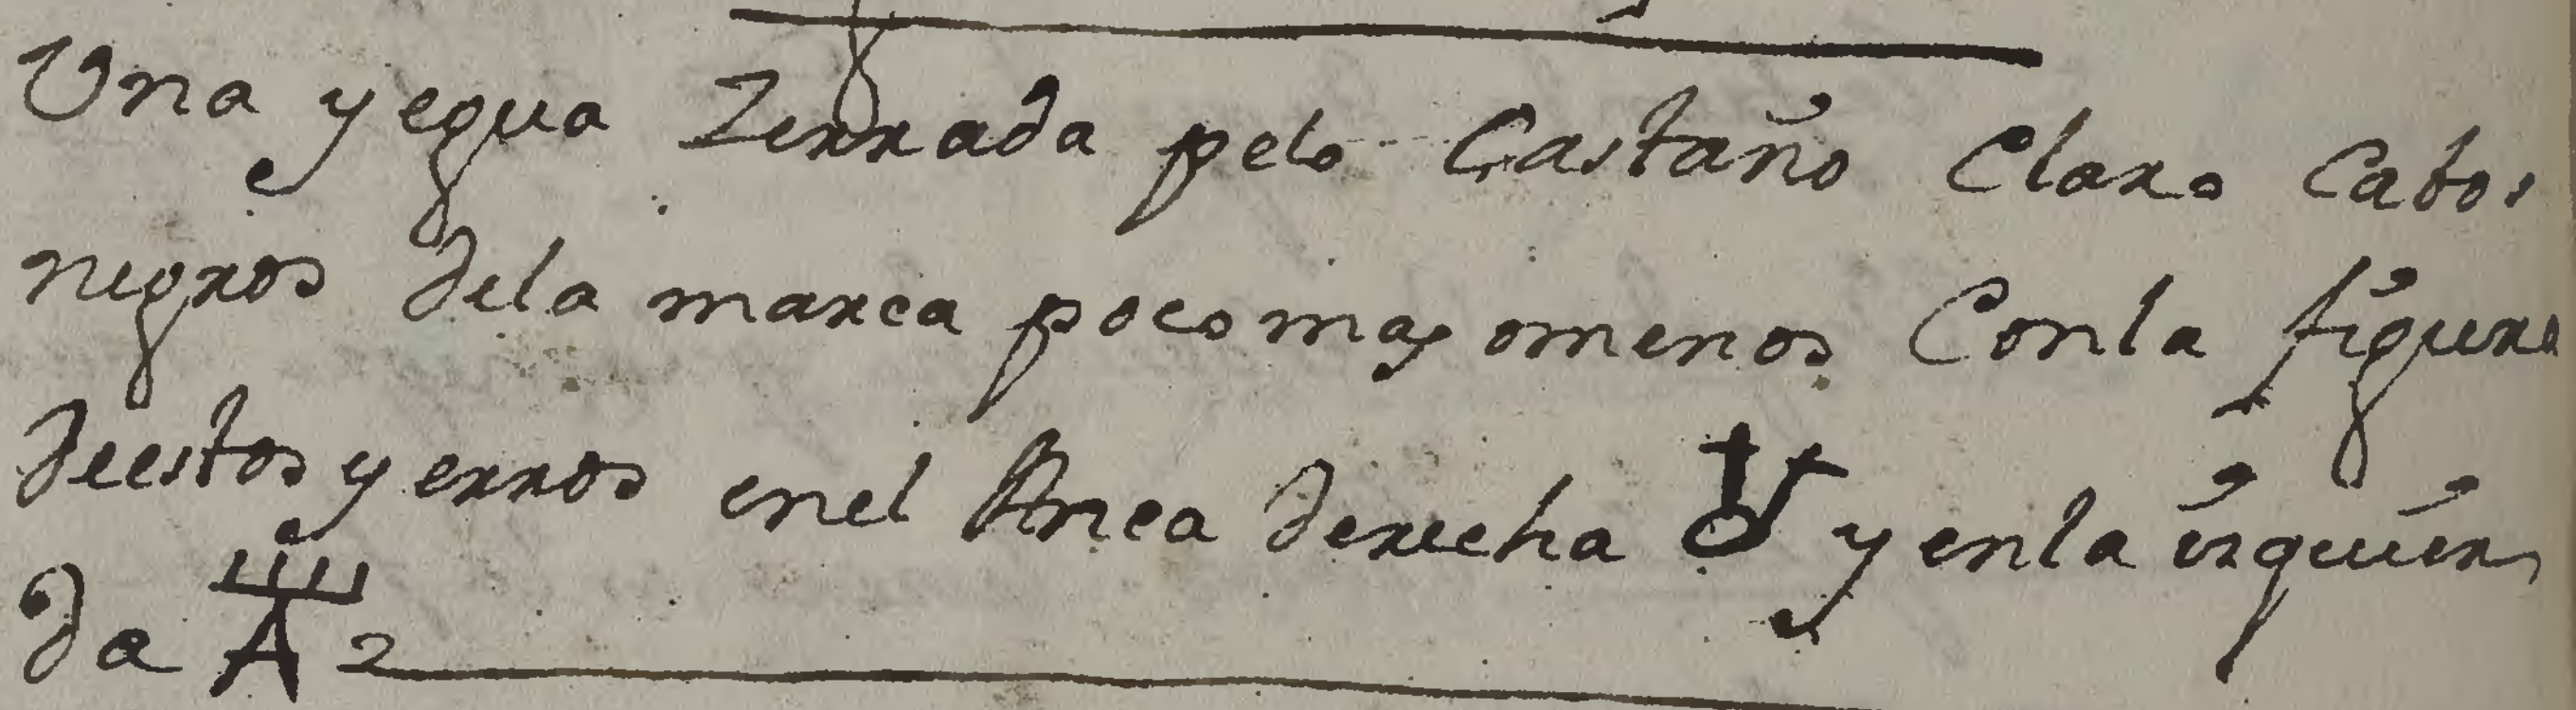 Una yegua Zerrada pelo Castaño Claro Cabos
negros dela marca poco mas omenos Conla figura
deestos yerros enel Anca derecha y enla izquier
da A